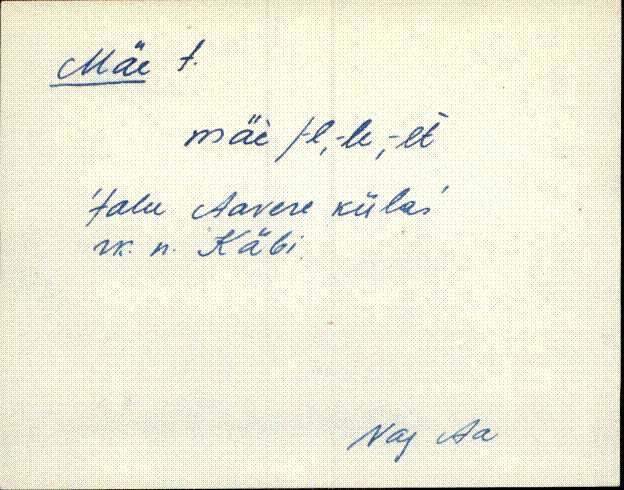 Mäe t.
mäè /-l, -le, -lt
'talu Aavere külas'
rk. n. Käbi
Vaj Aa